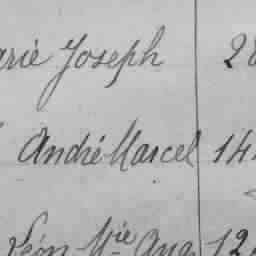 arie Joseph 28
André Marcel 14
Léon Mie Aug 12